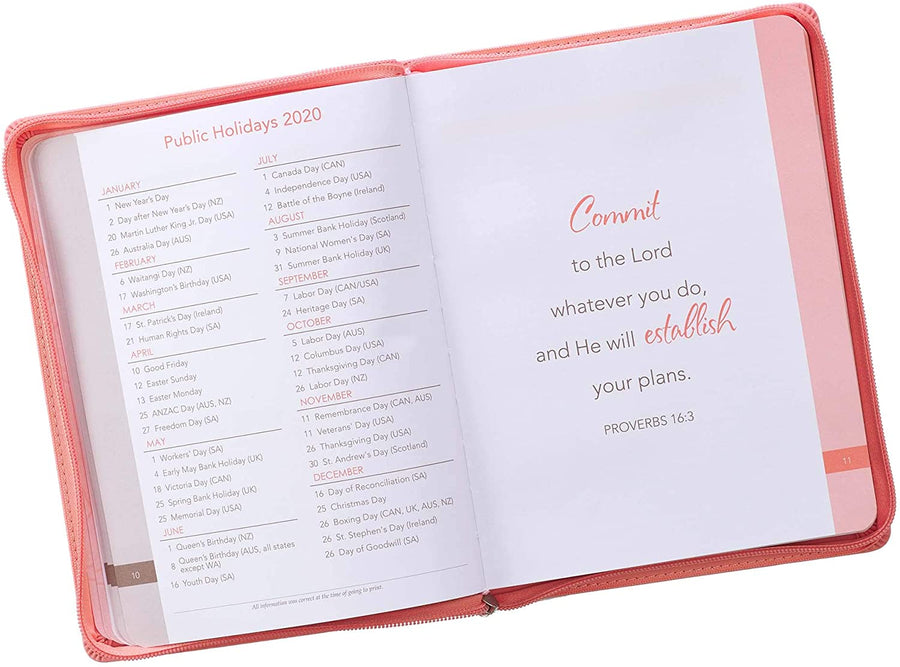 Public Holidays 2020
JANUARY
1 New Year's Day
2 Day after New Year's Day (NZ)
20 Martin Luther King Jr. Day (USA)
26 Australia Day (AUS)
FEBRUARY
6 Waitangi Day (NZ)
17 Washington's Birthday (USA)
MARCH
17 St. Patrick's Day (Ireland)
21 Human Rights Day (SA)
APRIL
10 Good Friday
12 Easter Sunday
13 Easter Monday
25 ANZAC Day (AUS, NZ)
27 Freedom Day (SA)
MAY
1 Workers' Day (SA)
4 Early May Bank Holiday (UK)
18 Victoria Day (CAN)
25 Spring Bank Holiday (UK)
25 Memorial Day (USA)
JUNE
1 Queen's Birthday (NZ)
8 Queen's Birthday (AUS, all states
except WA)
16 Youth Day (SA)
JULY
1 Canada Day (CAN)
4 Independence Day (USA)
12 Battle of the Boyne (Ireland)
AUGUST
3 Summer Bank Holiday (Scotland)
9 National Women's Day (SA)
31 Summer Bank Holiday (UK)
SEPTEMBER
7 Labor Day (CAN/USA)
24 Heritage Day (SA)
OCTOBER
5 Labor Day (AUS)
12 Columbus Day (USA)
12 Thanksgiving Day (CAN)
26 Labor Day (NZ)
NOVEMBER
11 Remembrance Day (CAN, AUS)
11 Veterans' Day (USA)
26 Thanksgiving Day (USA)
30 St. Andrew's Day (Scotland)
DECEMBER
16 Day of Reconciliation (SA)
25 Christmas Day
26 Boxing Day (CAN, UK, AUS, NZ)
26 St. Stephen's Day (Ireland)
26 Day of Goodwill (SA)
All information was correct at the time of going to print.
10
Commit
to the Lord
whatever you do,
and He will establish
your plans.
PROVERBS 16:3
11